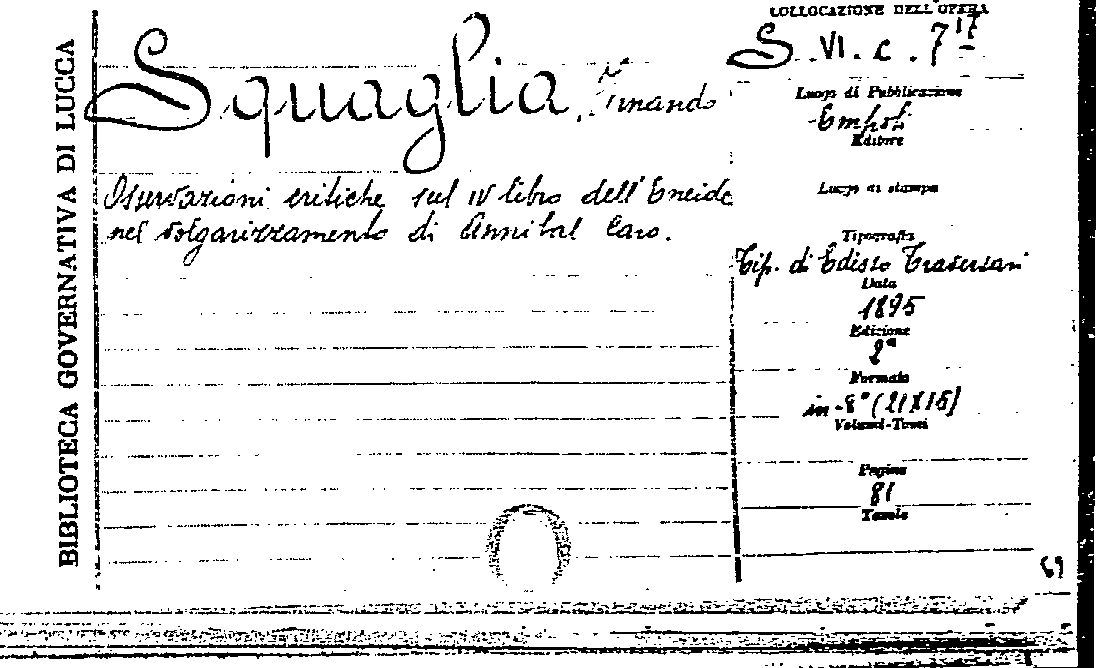 BIBLIOTECA GOVERNATIVA DI LUCCA
Squaglia,
Osservazioni critiche sul IV libro dell'Eneide
nel volgarizzamento di Annibal Caro.
COLLOCAZIONE DELL'OPERA
S. VI. c. 7
Luogo di Pubblicazione
Empoli
Editore
Luogo di stampa
Tipografia
Tip. di Edisso Traversari
Data
1895
Edizione
2ª
Formato
in-8° (21X15)
Volumi-Tomi
Pagine
81
Tavole